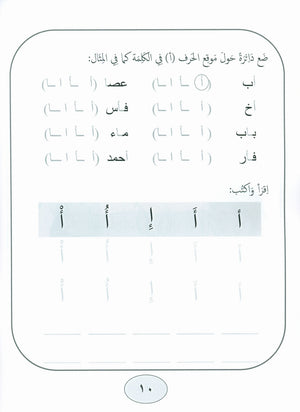 ضَع دَائِرَةً حَولَ مَوقِعِ الحَرف (أ) في الكَلِمَة كمَا في المِثال:
أب (أ ـأ ا ـا) عصا (أ ـأ ا ـا)
أخ (أ ـأ ا ـا) فأس (أ ـأ ا ـا)
باب (أ ـأ ا ـا) ماء (أ ـأ ا ـا)
فأر (أ ـأ ا ـا) أحمد (أ ـأ ا ـا)
اِقرَأ وَاكتُب:
أ أَ إِ أُ أْ
أ أَ إِ أُ أْ
أ أَ إِ أُ أْ
١٠